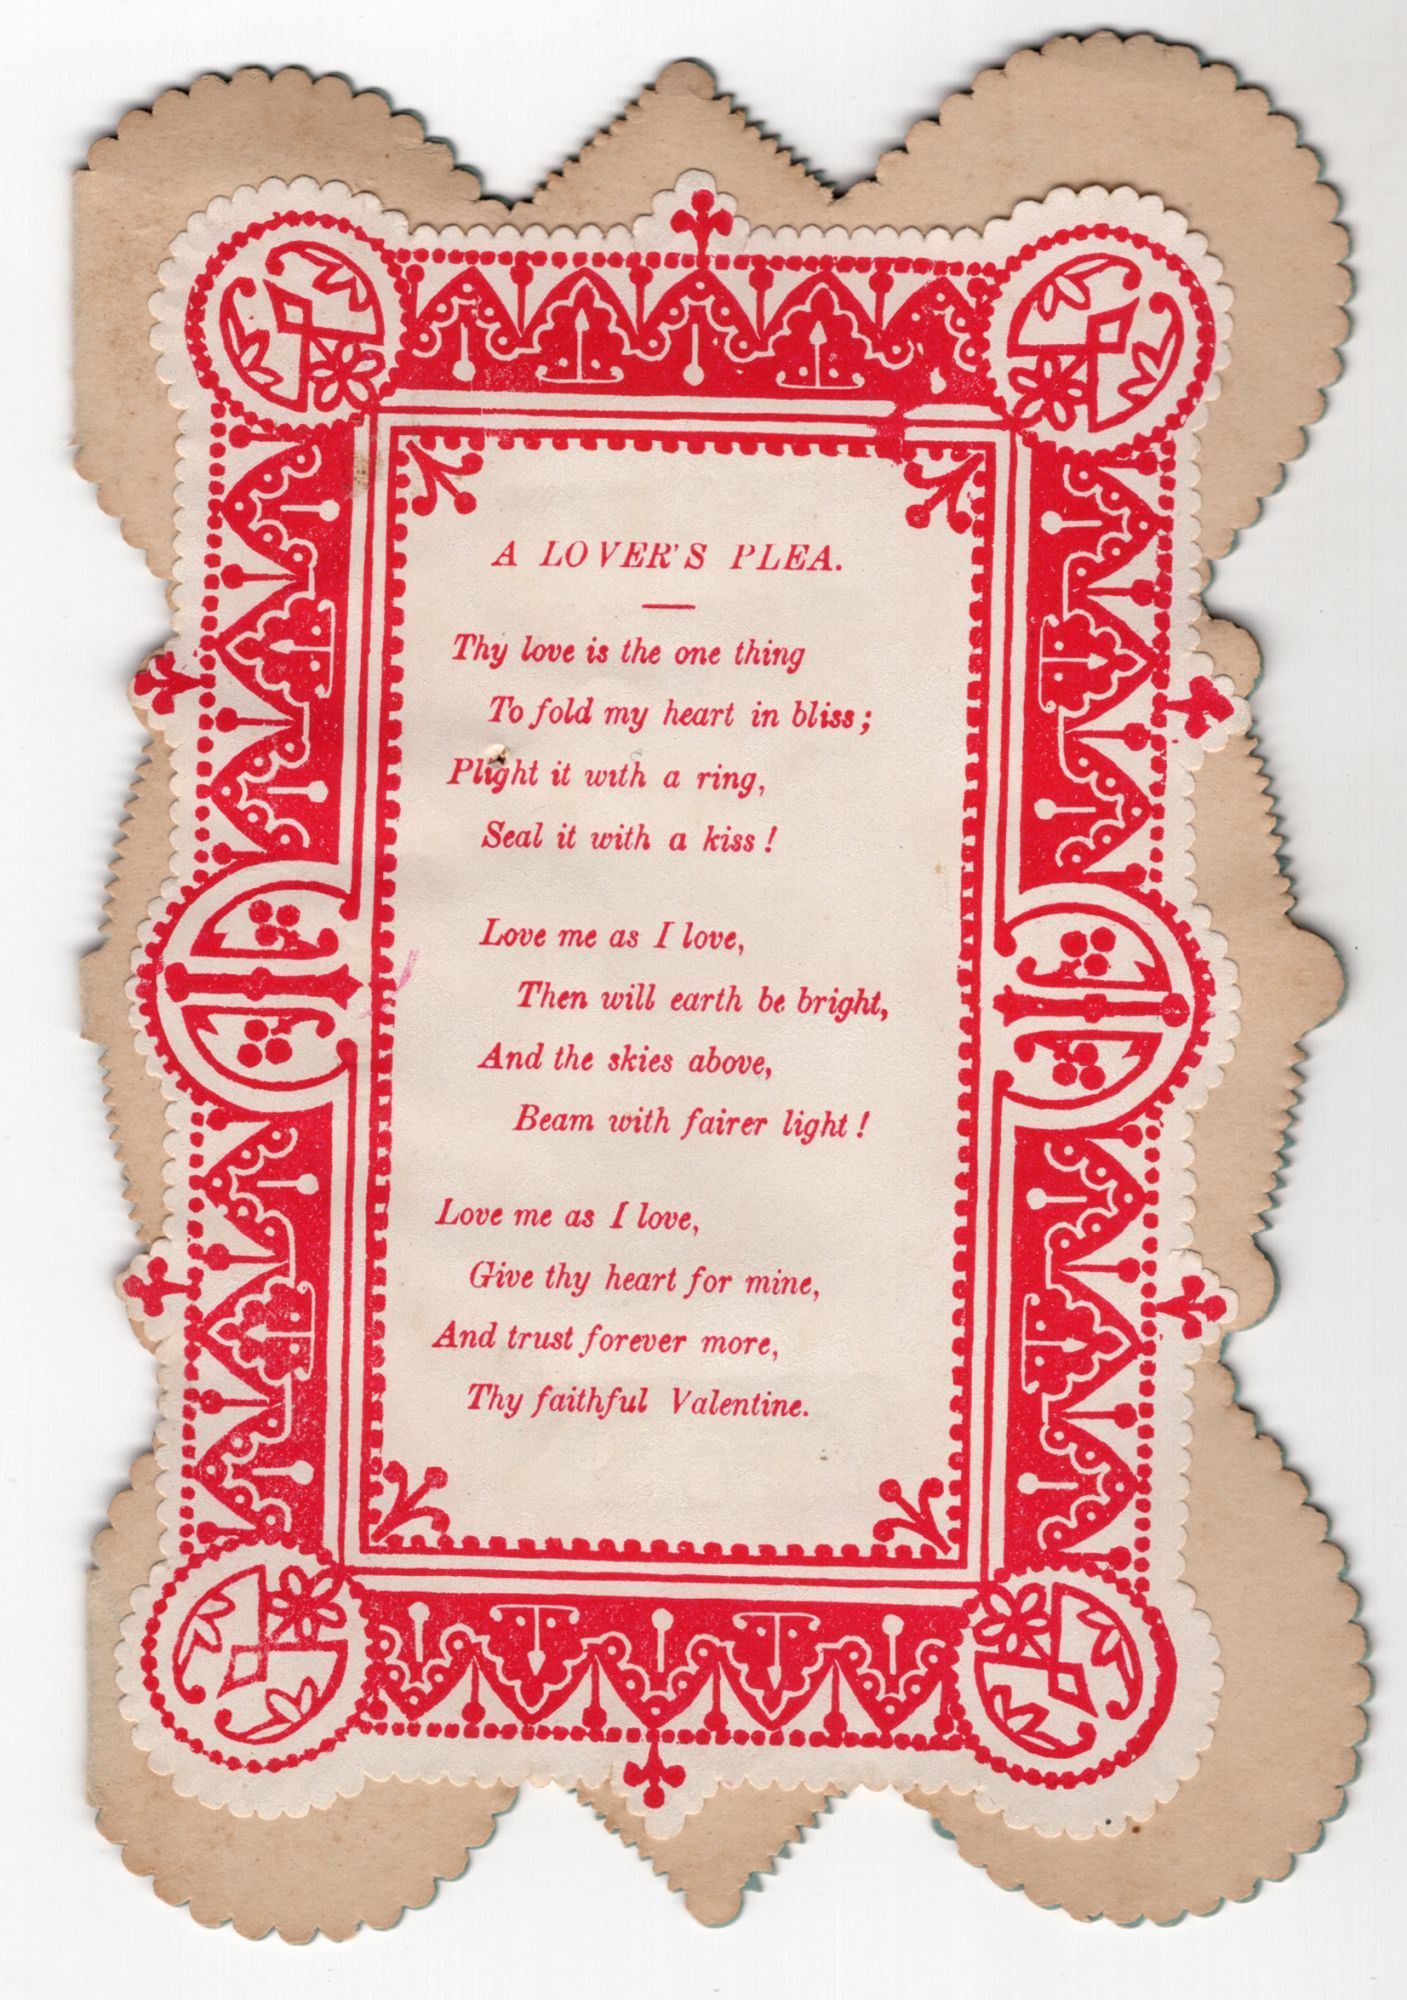 A LOVER'S PLEA.
Thy love is the one thing
To fold my heart in bliss;
Plight it with a ring,
Seal it with a kiss!
Love me as I love,
Then will earth be bright,
And the skies above,
Beam with fairer light!
Love me as I love,
Give thy heart for mine,
And trust forever more,
Thy faithful Valentine.